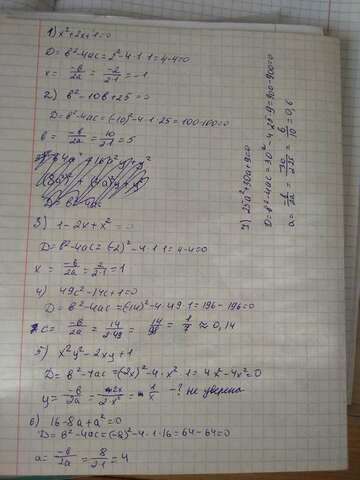 1) x²+2x+1=0
D=b²-4ac=2²-4·1·1=4-4=0
x= -b/2a = -2/2·1 = -1
2) b²-10b+25=0
D=b²-4ac=(-10)²-4·1·25=100-100=0
b= -b/2a = 10/2·1 = 5
3) 1-2x+x²=0
D=b²-4ac=(-2)²-4·1·1=4-4=0
x= -b/2a = 2/2·1 = 1
4) 49c²-14c+1=0
D=b²-4ac=(-14)²-4·49·1=196-196=0
c= -b/2a = 14/2·49 = 14/98 = 1/7 ≈ 0,14
5) x²y²-2xy+1
D=b²-4ac=(-2x)²-4·x²·1=4x²-4x²=0
y= -b/2a = 2x/2·x² = 1/x -? не уверена
6) 16-8a+a²=0
D=b²-4ac=(-8)²-4·1·16=64-64=0
a= -b/2a = 8/2·1 = 4
7) 25a²+30a+9=0
D=b²-4ac=30²-4·25·9=900-900=0
a= -b/2a = -30/2·25 = 6/10 = 0,6